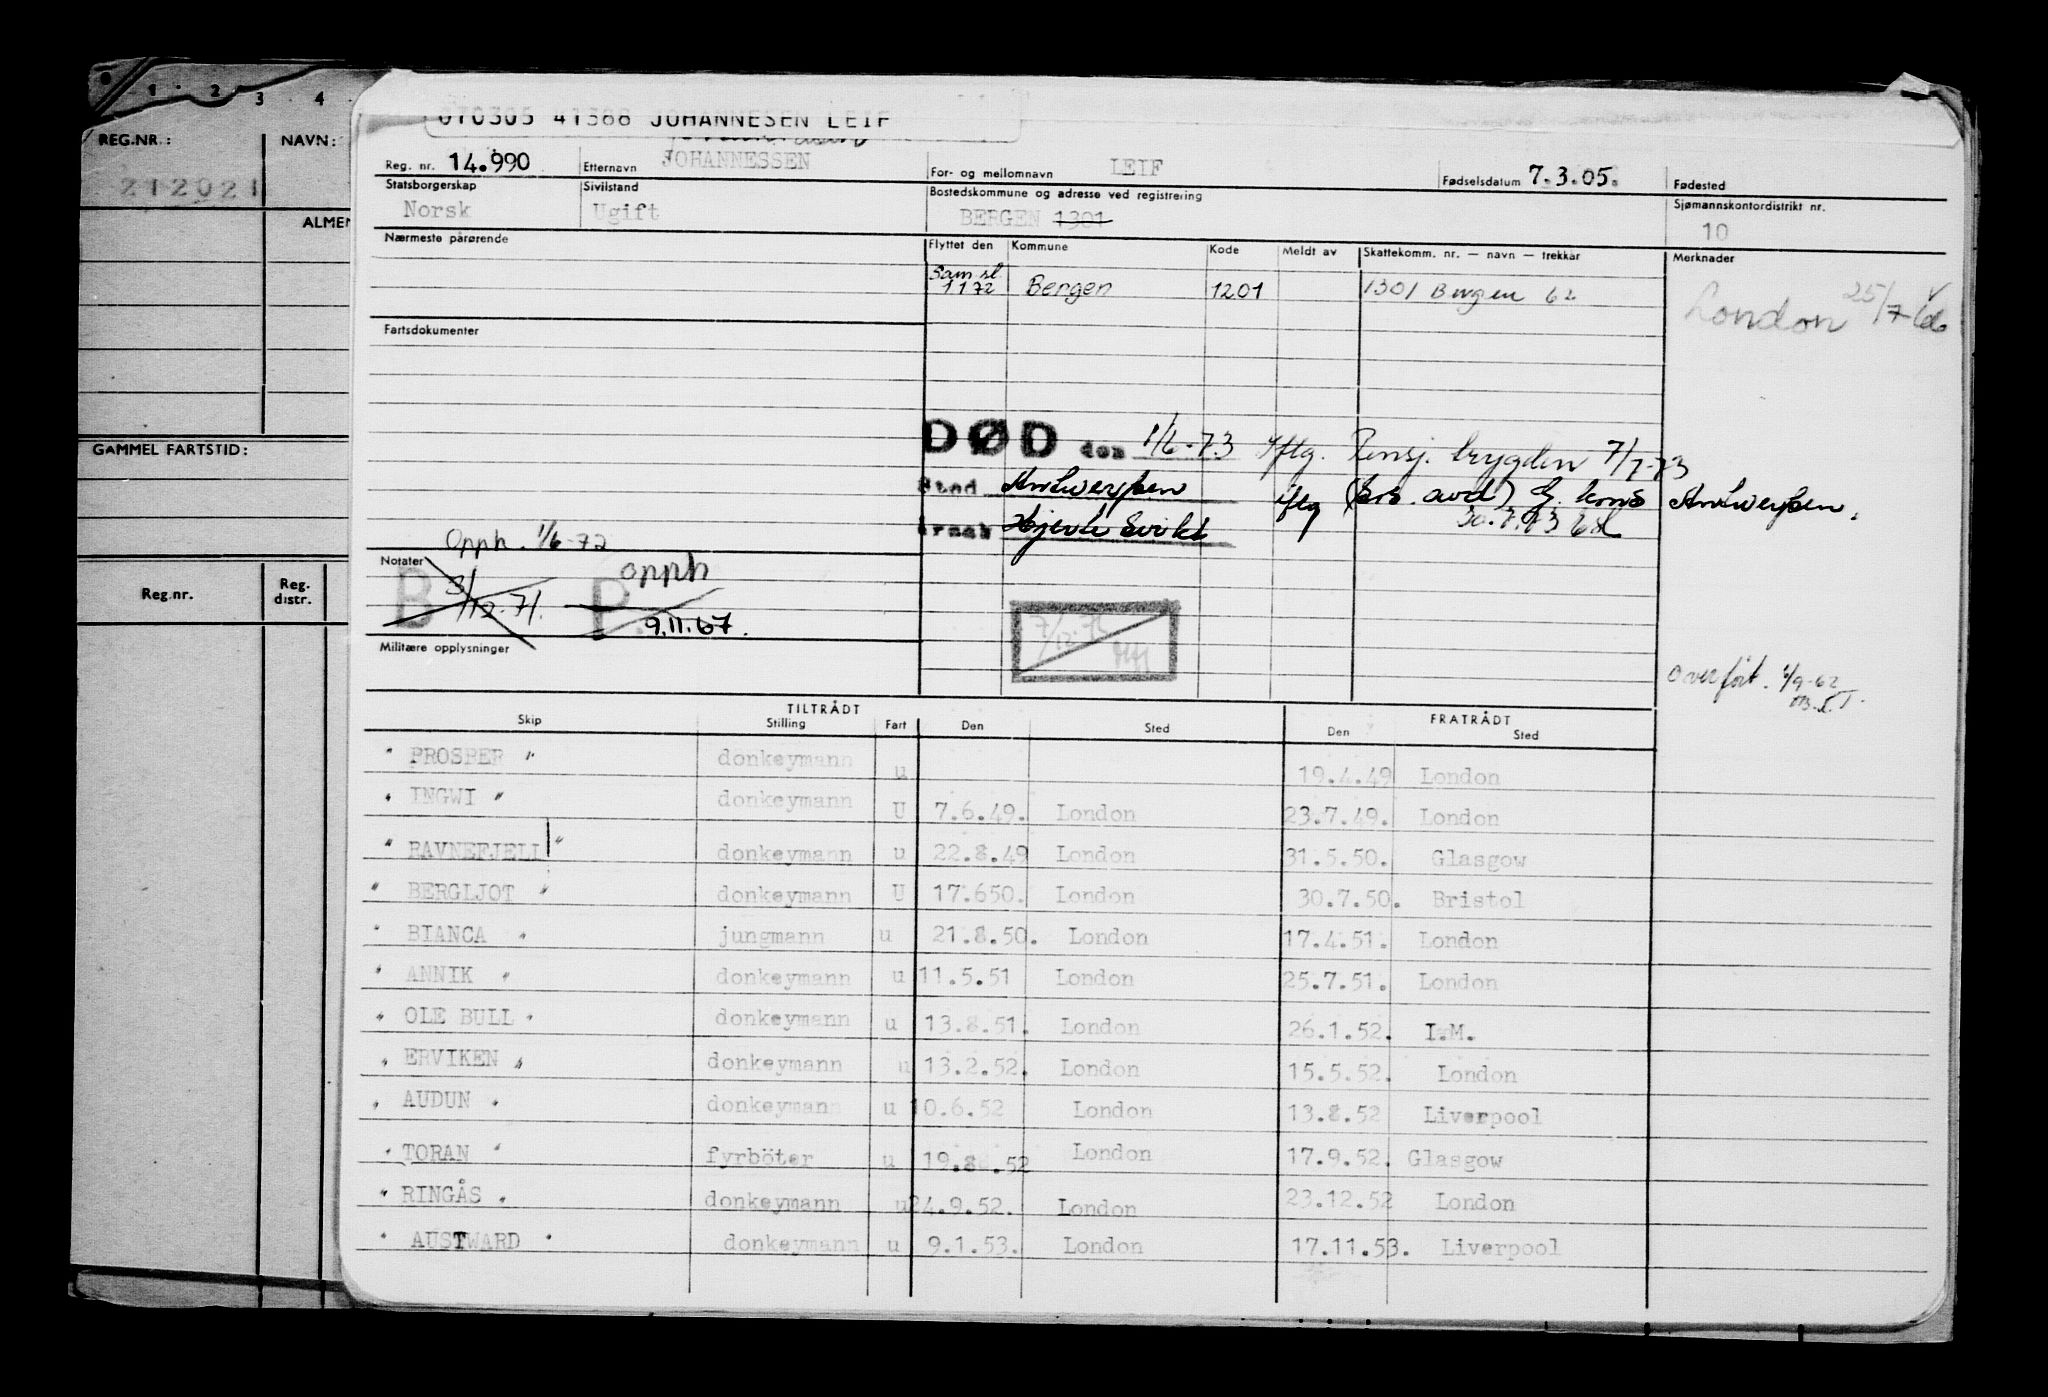 1 · 2 3 4
REG.NR.: NAVN:
212021
ALMEN
GAMMEL FARTSTID:
Reg.nr. Reg. distr.
070305 41388 JOHANNESEN LEIF
Reg. nr. 14.990 Etternavn JOHANNESSEN For- og mellomnavn LEIF Fødselsdatum 7.3.05. Fødested
Statsborgerskap Sivilstand Bostedskommune og adresse ved registrering Sjømannskontordistrikt nr.
Norsk Ugift BERGEN 1301 10
Nærmeste pårørende Flyttet den Kommune Kode Meldt av Skattekomm. nr. — navn — trekkår Merknader
Sam.sl.
1172 Bergen 1201 1301 Bergen 62
London 25/7-66
Fartsdokumenter
DØD den 1/6-73 iflg. Pensj. trygden 7/7-73
Sted Antwerpen iflg G. kons Antwerpen.
årsak Hjerte svikt 30.7.73
Opph. 1/6-72
Notater
B 3/12-71. P. opph 9.11.67.
7/12.
Militære opplysninger
Overført. 1/9-62
TILTRÅDT FRATRÅDT
Skip Stilling Fart Den Sted Den Sted
" PROSPER " donkeymann u 19.4.49 London
" INGWI " donkeymann U 7.6.49. London 23.7.49. London
" RAVNEFJELL " donkeymann u 22.8.49 London 31.5.50. Glasgow
" BERGLJOT " donkeymann U 17.650. London 30.7.50. Bristol
" BIANCA " jungmann u 21.8.50. London 17.4.51. London
" ANNIK " donkeymann u 11.5.51 London 25.7.51. London
" OLE BULL " donkeymann u 13.8.51. London 26.1.52. I.M.
" ERVIKEN " donkeymann u 13.2.52. London 15.5.52. London
" AUDUN " donkeymann u 10.6.52 London 13.8.52 Liverpool
" TORAN " fyrböter u 19.8.52 London 17.9.52. Glasgow
" RINGÅS " donkeymann u 24.9.52. London 23.12.52 London
" AUSTWARD " donkeymann u 9.1.53. London 17.11.53. Liverpool